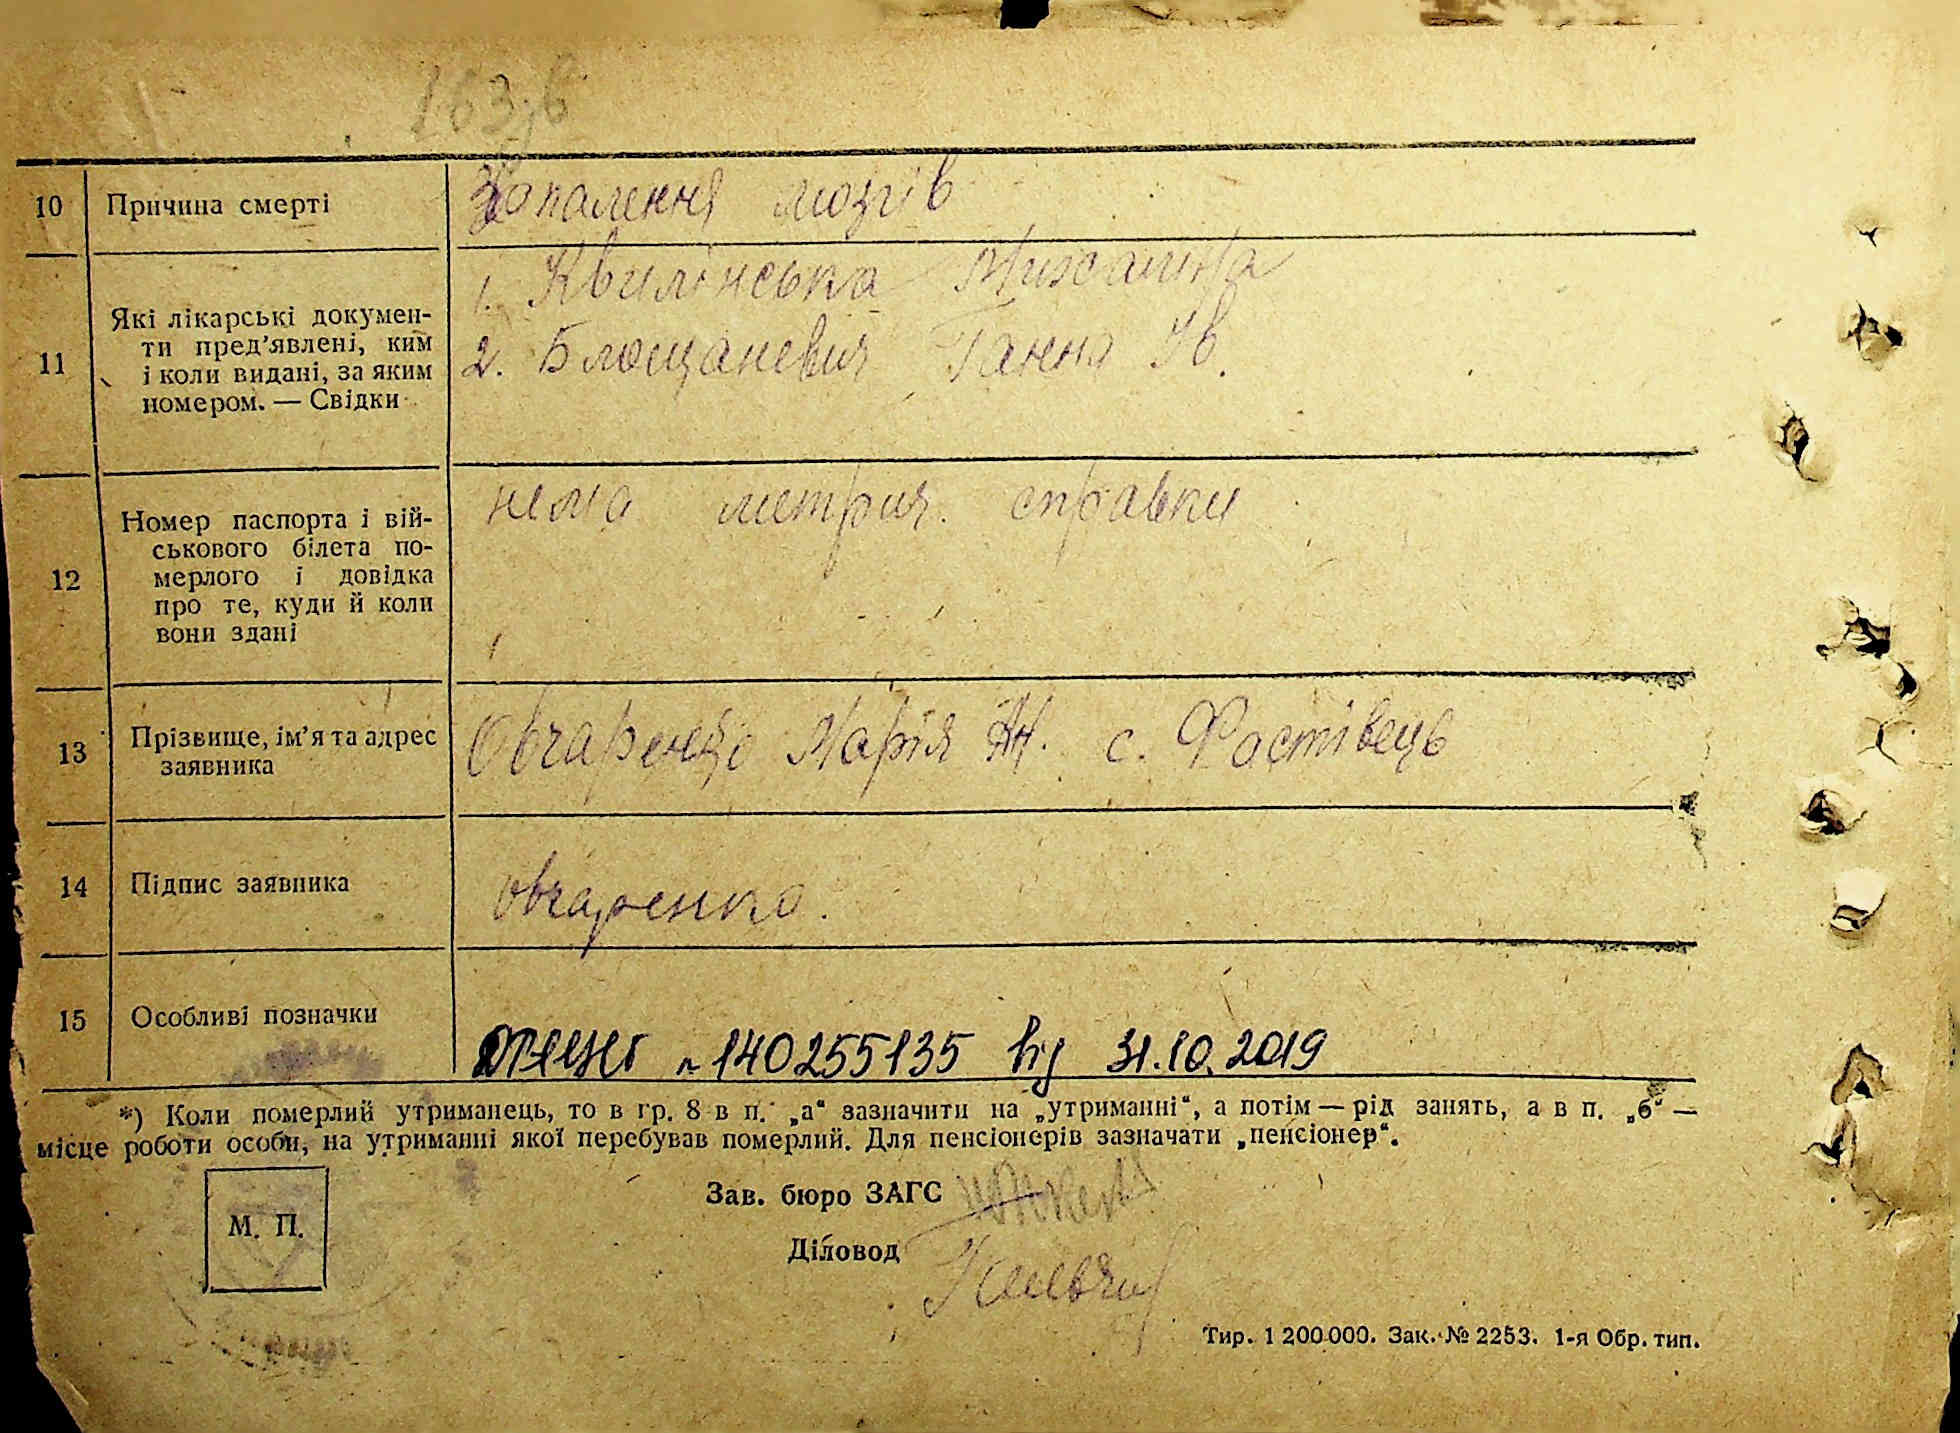 163
10 Причина смерті Запалення мозгів
11 Які лікарські докумен-
ти пред’явлені, ким
і коли видані, за яким
номером. — Свідки
1. Квилінська Михалина
2. Блощаневич Ганна Ів.
12 Номер паспорта і вій-
ськового білета по-
мерлого і довідка
про те, куди й коли
вони здані
нема метрич. справки
13 Прізвище, ім’я та адрес
заявника
Овчаренко Марія Ан. с. Фостівець
14 Підпис заявника овчаренко.
15 Особливі позначки
№ 140255135 від 31.10.2019
*) Коли померлий утриманець, то в гр. 8 в п. „а“ зазначити на „утриманні“, а потім — рід занять, а в п. „б“ —
місце роботи особи, на утриманні якої перебував померлий. Для пенсіонерів зазначати „пенсіонер“.
М. П.
Зав. бюро ЗАГС
Діловод
Тир. 1 200 000. Зак. № 2253. 1-я Обр. тип.